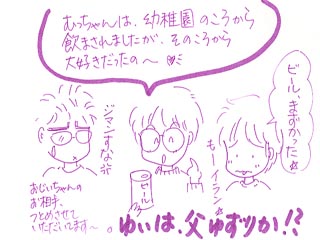 むっちゃんは、幼稚園のころから
飲まされましたが、そのころから
大好きだったの〜
ビール、まずかった
ジマンすなっ
もーイラン
ビール
おじいちゃんの
お相手、
つとめさせて
いただいてます〜。
ゆいは、父ゆずりか!?